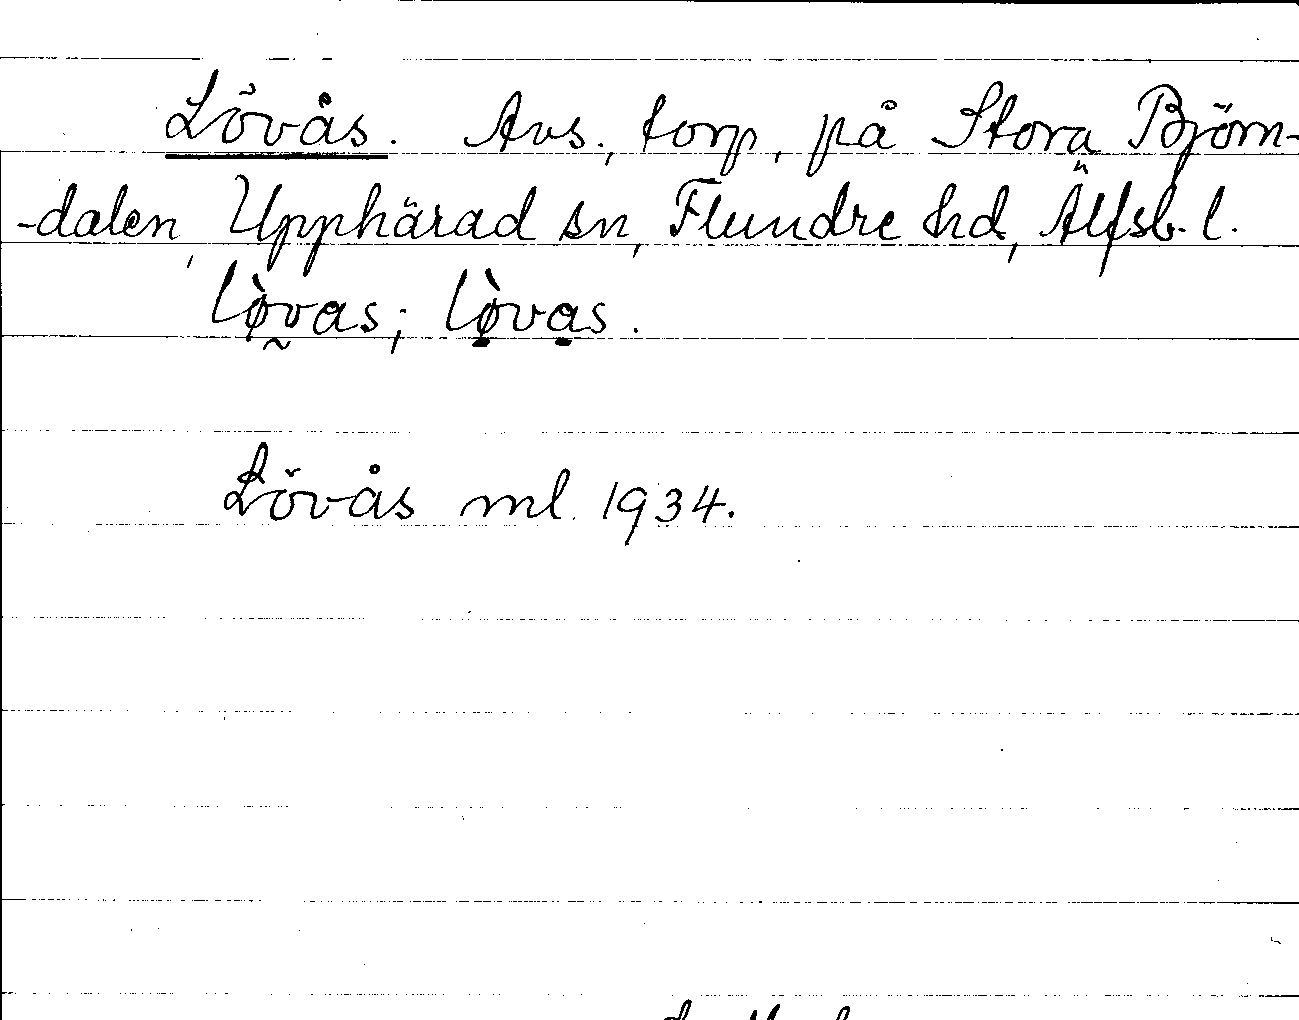 Lövås. Avs., torp, på Stora Björn-
-dalen, Upphärad sn, Flundre hd, Älfsb. l.
lø̀vas; lø̀vas.
Lövås ml. 1934.